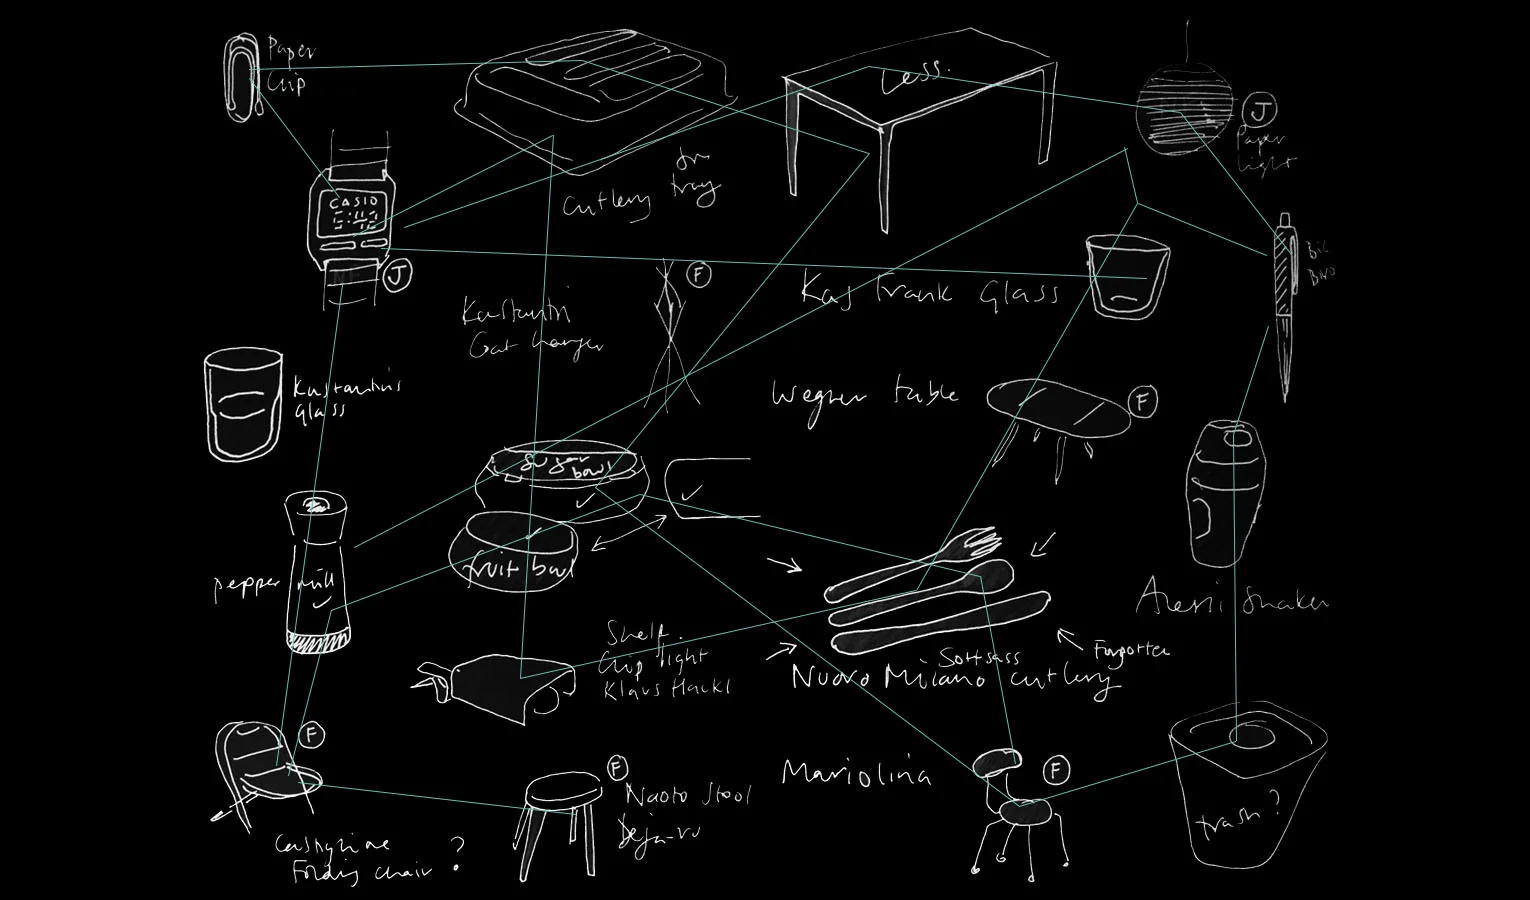 Paper
Clip
Less.
J
Paper
light
Cutlery
tray
CASIO
J
Bic
Biro
F
Kaj Frank Glass
Kastantin
Coat hanger
Wegner table
F
Kastantin's
glass
Sugar
bowl
fruit bowl
pepper mill
Alessi Shaker
Shelf.
Clip light
Klaus Hackl
Sottsass
Nuovo Milano cutlery
F
F
F
Mariolina
Naoto Stool
Deja-vu
trash?
Castiglione
Folding chair ?